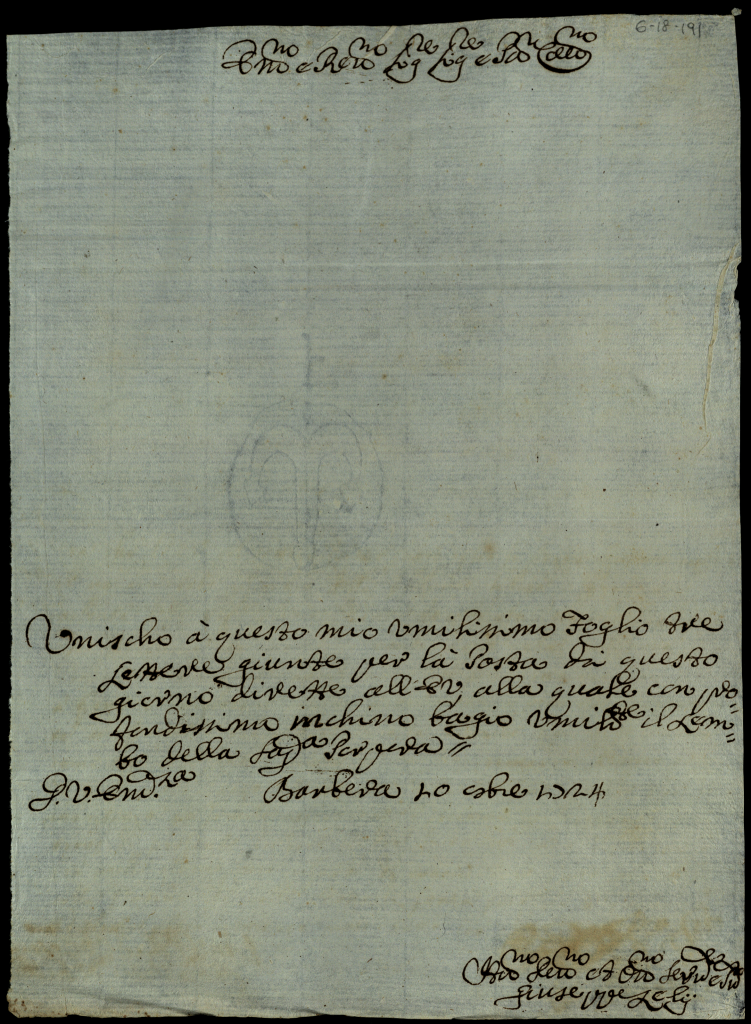 6-18-19
Em.no e Rev.no Sig.re Sig.re e Pad.n Col.mo
Unischo à questo mio Umilissimo Foglio tre
Lettere giunte per la Posta di questo
giorno dirette all'EV, alla quale con pro=
fondissimo inchino bagio Umilm.te il Lem=
bo della Sag.a Porpora
D. V. Em.za Barbera 10 8bre 1724
Um.no Dev.no et Ob.no
Giuseppe Lelij